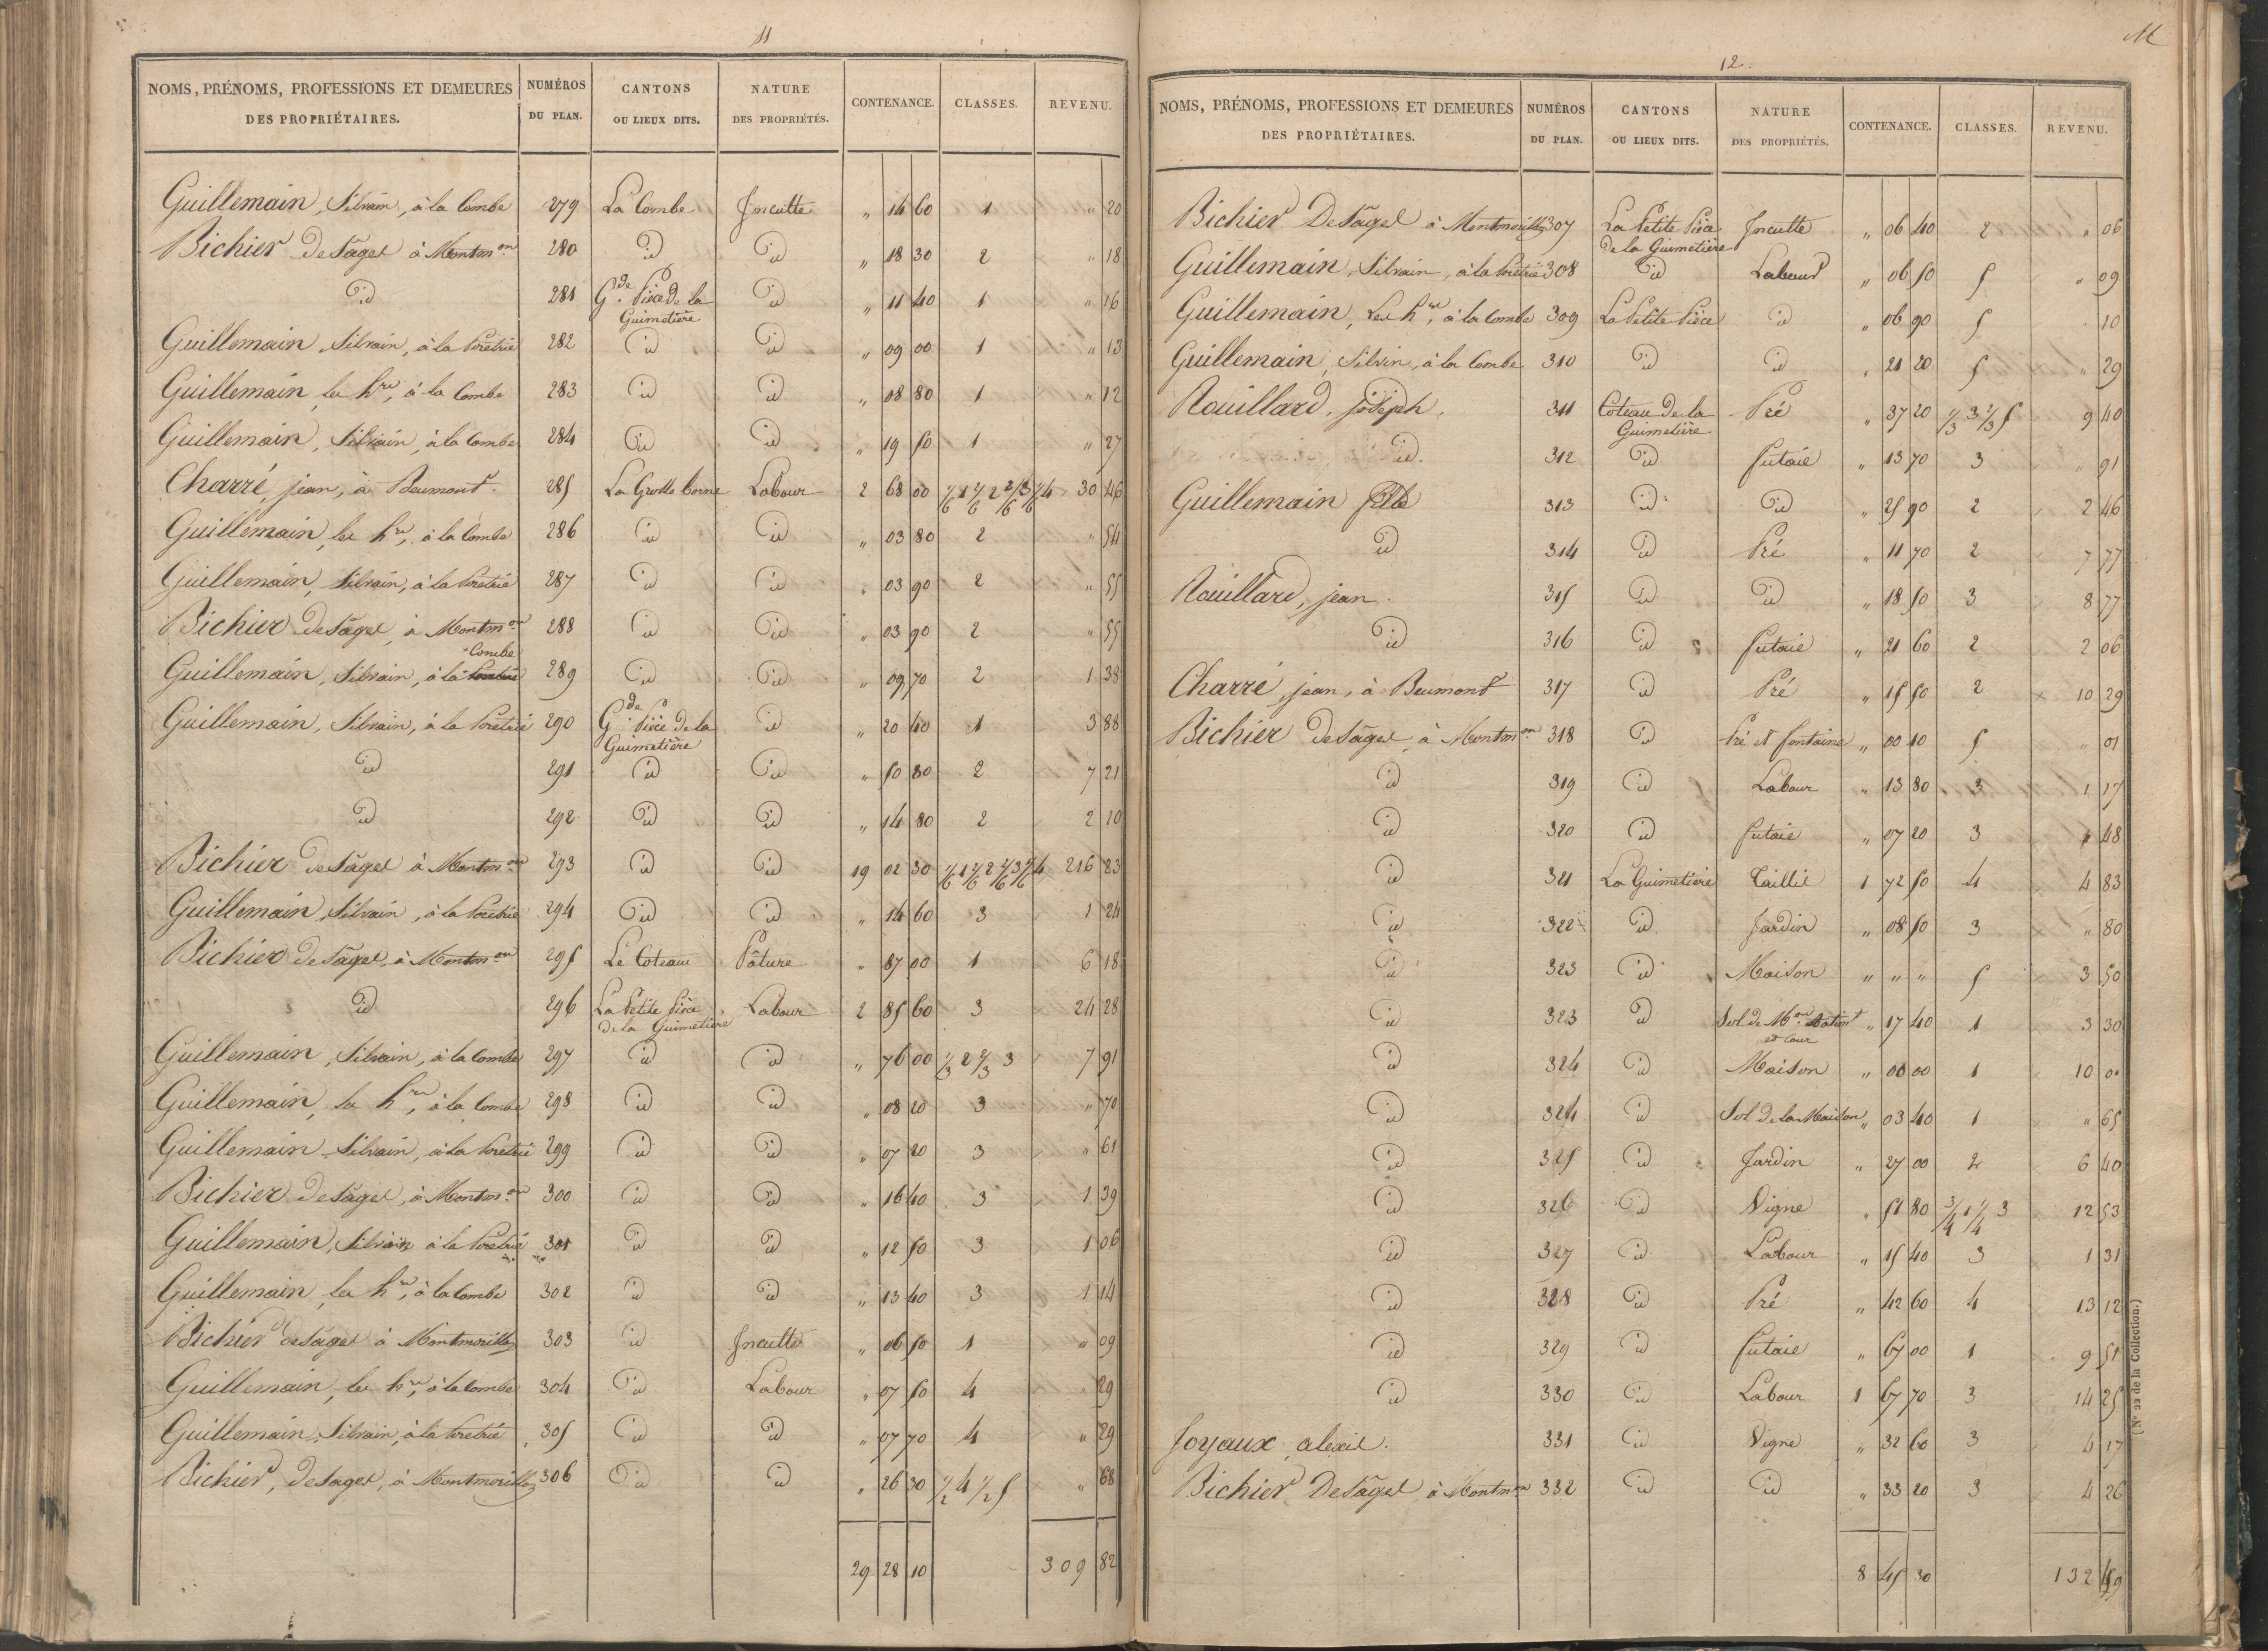 11
NOMS, PRÉNOMS, PROFESSIONS ET DEMEURES DES PROPRIÉTAIRES. NUMÉROS DU PLAN. CANTONS OU LIEUX DITS. NATURE DES PROPRIÉTÉS. CONTENANCE. CLASSES. REVENU.
Guillemain, Silvain, à la Combe 279 La Combe Inculte " 14 60 1 " 20
Bichier de Sâgel à Montm.on 280 id id " 18 30 2 " 18
id 281 G.de Pièce de la Guimetière id " 11 40 1 " 16
Guillemain, Silvain, à la Poretrie 282 id id " 09 00 1 " 13
Guillemain, les h.rs, à la Combe 283 id id " 08 80 1 " 12
Guillemain, Silvain, à la Combe 284 id id " 19 50 1 " 27
Charré, jean, à Beumont. 285 La Grosse borne Labour 2 68 00 1/6 1 2/6 2 2/6 3 1/6 4 30 46
Guillemain, les h.rs, à la Combe 286 id id " 03 80 2 " 54
Guillemain, Silvain, à la Poretrie 287 id id " 03 90 2 " 55
Bichier de Sâgel, à Montm.on 288 id id " 03 90 2 " 55
Guillemain, Silvain, à la Combe 289 id id " 09 70 2 1 38
Guillemain, Silvain, à la Poretrie 290 G.de Pièce de la Guimetière id " 20 40 1 3 88
id 291 id id " 50 80 2 7 21
id 292 id id " 14 80 2 2 10
Bichier de Sâgel à Montm.on 293 id id 19 02 30 216 23
Guillemain, Silvain, à la Poretrie 294 id id " 14 60 3 1 24
Bichier de Sâgel, à Montm.on 295 Le Coteau Pâture " 87 00 1 6 18
id 296 La Petite Pièce de la Guimetière Labour 2 85 60 3 24 28
Guillemain, Silvain, à la Combe 297 id id " 76 00 1/3 2 2/3 3 7 91
Guillemain, les h.rs, à la Combe 298 id id " 08 20 3 " 70
Guillemain, Silvain, à la Poretrie 299 id id " 07 20 3 " 61
Bichier de Sâgel, à Montm.on 300 id id " 16 40 3 1 39
Guillemain, Silvain à la Poretrie 301 id id " 12 50 3 1 06
Guillemain, les h.rs, à la Combe 302 id id " 13 40 3 1 14
Bichier de Sâgel à Montmorillon 303 id Inculte " 06 50 1 " 09
Guillemain, les h.rs, à la Combe 304 id Labour " 07 50 4 29
Guillemain, Silvain, à la Poretrie 305 id id " 07 70 4 " 29
Bichier, de Sagel, à Montmorillon 306 id id " 26 30 1/2 4 1/2 5 " 68
29 28 10 309 82
12.
NOMS, PRÉNOMS, PROFESSIONS ET DEMEURES DES PROPRIÉTAIRES. NUMÉROS DU PLAN. CANTONS OU LIEUX DITS. NATURE DES PROPRIÉTÉS. CONTENANCE. CLASSES. REVENU.
Bichier De Sâgel à Montmorillon 307 La Petite Pièce de la Guimetière Inculte " 06 40 2 " 06
Guillemain, Silvain, à la Poretrie 308 id Labour " 06 50 5 " 09
Guillemain, Les h.rs, à la Combe 309 La Petite Pièce id " 06 90 5 10
Guillemain, Silvin, à la Combe 310 id id " 21 20 5 " 29
Rouillard, joseph. 311 Coteau de la Guimetière Pré " 37 20 1/3 3 2/3 5 9 40
id. 312 id futaie " 13 70 3 " 91
Guillemain fils 313 id id " 25 90 2 2 46
id 314 id Pré " 11 70 2 7 77
Rouillard, jean. 315 id id " 18 50 3 8 77
id 316 id futaie " 21 60 2 2 06
Charré, jean, à Beumont 317 id Pré " 15 50 2 10 29
Bichier de Sâgel, à Montm.on 318 id Pré et fontaine " 00 10 5 " 01
id 319 id Labour " 13 80 3 1 17
id 320 id futaie " 07 20 3 " 48
id 321 La Guimetière Taillis 1 72 50 4 4 83
id 322 id Jardin " 08 50 3 " 80
id 323 id Maison " " " 5 3 50
id 323 id Sol de M.on Batim.t et Cour " 17 40 1 3 30
id 324 id Maison " 00 00 1 10 00
id 324 id Sol de la Maison " 03 40 1 " 65
id 325 id Jardin " 27 00 2 6 40
id 326 id Vigne " 51 80 3/4 1 1/4 3 12 53
id 327 id Labour " 15 40 3 1 31
id 328 id Pré " 42 60 4 13 12
id 329 id futaie " 67 00 1 9 51
id 330 id Labour 1 67 70 3 14 25
Joyaux, alexis. 331 id Vigne " 32 60 3 4 17
Bichier De Sâgel, à Montm.on 332 id id " 33 20 3 4 26
8 45 30 132 49
(N° 22 de la Collection.)